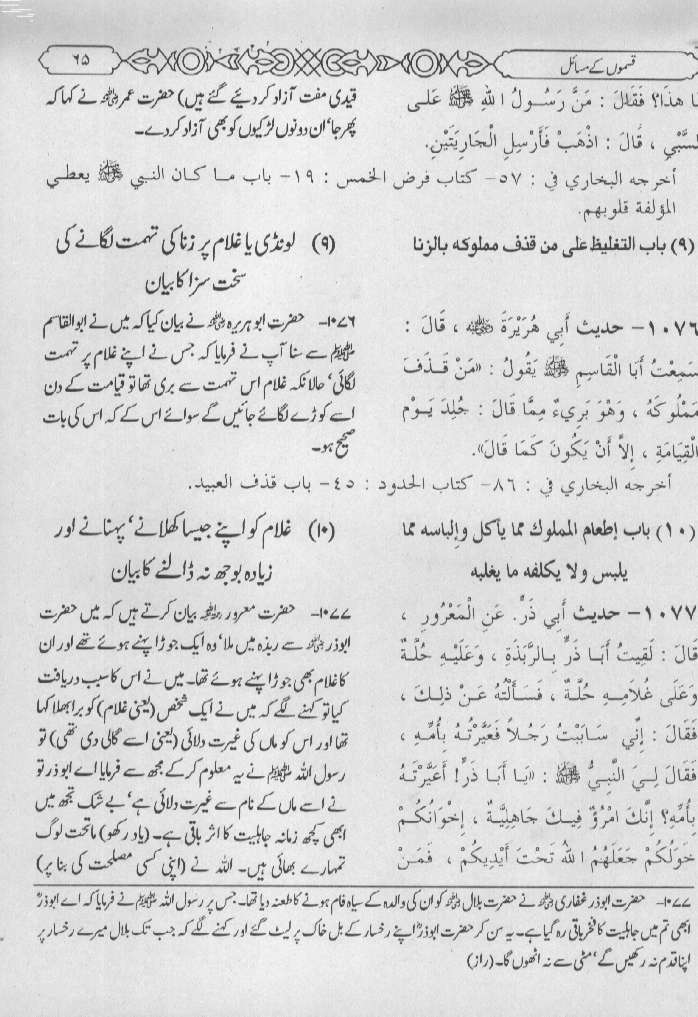 قسموں کے مسائل
۶۵
ا هذا؟ فَقَالَ : مَنَّ رَسُولُ اللهِ ﷺ عَلَى
لسَّبْيِ ، قَالَ : اذْهَبْ فَأَرْسِلِ الْجَارِيَتَيْنِ.
قیدی مفت آزاد کر دیئے گئے ہیں) حضرت عمر رضی اللہ عنہ نے کہا کہ
پھر جا' ان دونوں لڑکیوں کو بھی آزاد کر دے۔
أخرجه البخاري في : ٥٧- كتاب فرض الخمس : ١٩- باب ما كان النبي ﷺ يعطي
المؤلفة قلوبهم.
(٩) باب التغليظ على من قذف مملوكه بالزنا
(۹) لونڈی یا غلام پر زنا کی تہمت لگانے کی
سخت سزا کا بیان
١٠٧٦- حديث أَبِي هُرَيْرَةَ رضی اللہ عنہ ، قَالَ :
سَمِعْتُ أَبَا الْقَاسِمِ ﷺ يَقُولُ : «مَنْ قَذَفَ
مَمْلُوكَهُ ، وَهُوَ بَرِيءٌ مِمَّا قَالَ : جُلِدَ يَوْمَ
الْقِيَامَةِ ، إِلاَّ أَنْ يَكُونَ كَمَا قَالَ».
۱۰۷۶- حضرت ابو ہریرہ رضی اللہ عنہ نے بیان کیا کہ میں نے ابوالقاسم
ﷺ سے سنا آپ نے فرمایا کہ جس نے اپنے غلام پر تہمت
لگائی' حالانکہ غلام اس تہمت سے بری تھا تو قیامت کے دن
اسے کوڑے لگائے جائیں گے سوائے اس کے کہ اس کی بات
صحیح ہو۔
أخرجه البخاري في : ٨٦- كتاب الحدود : ٤٥- باب قذف العبيد.
(١٠) باب إطعام المملوك مما يأكل وإلباسه مما
يلبس ولا يكلفه ما يغلبه
(۱۰) غلام کو اپنے جیسا کھلانے' پہنانے اور
زیادہ بوجھ نہ ڈالنے کا بیان
١٠٧٧- حديث أَبِي ذَرٍّ. عَنِ الْمَعْرُورِ ،
قَالَ : لَقِيتُ أَبَا ذَرٍّ بِالرَّبَذَةِ ، وَعَلَيْهِ حُلَّةٌ
وَعَلَى غُلاَمِهِ حُلَّةٌ ، فَسَأَلْتُهُ عَنْ ذلِكَ ،
فَقَالَ : إِنِّي سَابَبْتُ رَجُلاً فَعَيَّرْتُهُ بِأُمِّهِ ،
فَقَالَ لِيَ النَّبِيُّ ﷺ : «يَا أَبَا ذَرٍّ! أَعَيَّرْتَهُ
بِأُمِّهِ؟ إِنَّكَ امْرُؤٌ فِيكَ جَاهِلِيَّةٌ ، إِخْوَانُكُمْ
خَوَلُكُمْ جَعَلَهُمُ اللهُ تَحْتَ أَيْدِيكُمْ ، فَمَنْ
۱۰۷۷- حضرت معرور رحمہ اللہ بیان کرتے ہیں کہ میں حضرت
ابوذر رضی اللہ عنہ سے ربذہ میں ملا' وہ ایک جوڑا پہنے ہوئے تھے اور ان
کا غلام بھی جوڑا پہنے ہوئے تھا۔ میں نے اس کا سبب دریافت
کیا تو کہنے لگے کہ میں نے ایک شخص (یعنی غلام) کو برا بھلا کہا
تھا اور اس کو ماں کی غیرت دلائی (یعنی اسے گالی دی تھی) تو
رسول اللہ ﷺ نے یہ معلوم کر کے مجھ سے فرمایا اے ابوذر تو
نے اسے ماں کے نام سے غیرت دلائی ہے' بے شک تجھ میں
ابھی کچھ زمانہ جاہلیت کا اثر باقی ہے۔ (یاد رکھو) ماتحت لوگ
تمہارے بھائی ہیں۔ اللہ نے (اپنی کسی مصلحت کی بنا پر)
۱۰۷۷- حضرت ابوذر غفاری رضی اللہ عنہ نے حضرت بلال رضی اللہ عنہ کو ان کی والدہ کے سیاہ فام ہونے کا طعنہ دیا تھا۔ جس پر رسول اللہ ﷺ نے فرمایا کہ اے ابوذر
ابھی تم میں جاہلیت کا فخر باقی رہ گیا ہے۔ یہ سن کر حضرت ابوذر اپنے رخسار کے بل خاک پر لیٹ گئے اور کہنے لگے کہ جب تک بلال میرے رخسار پر
اپنا قدم نہ رکھیں گے' مٹی سے نہ اٹھوں گا۔ (راز)